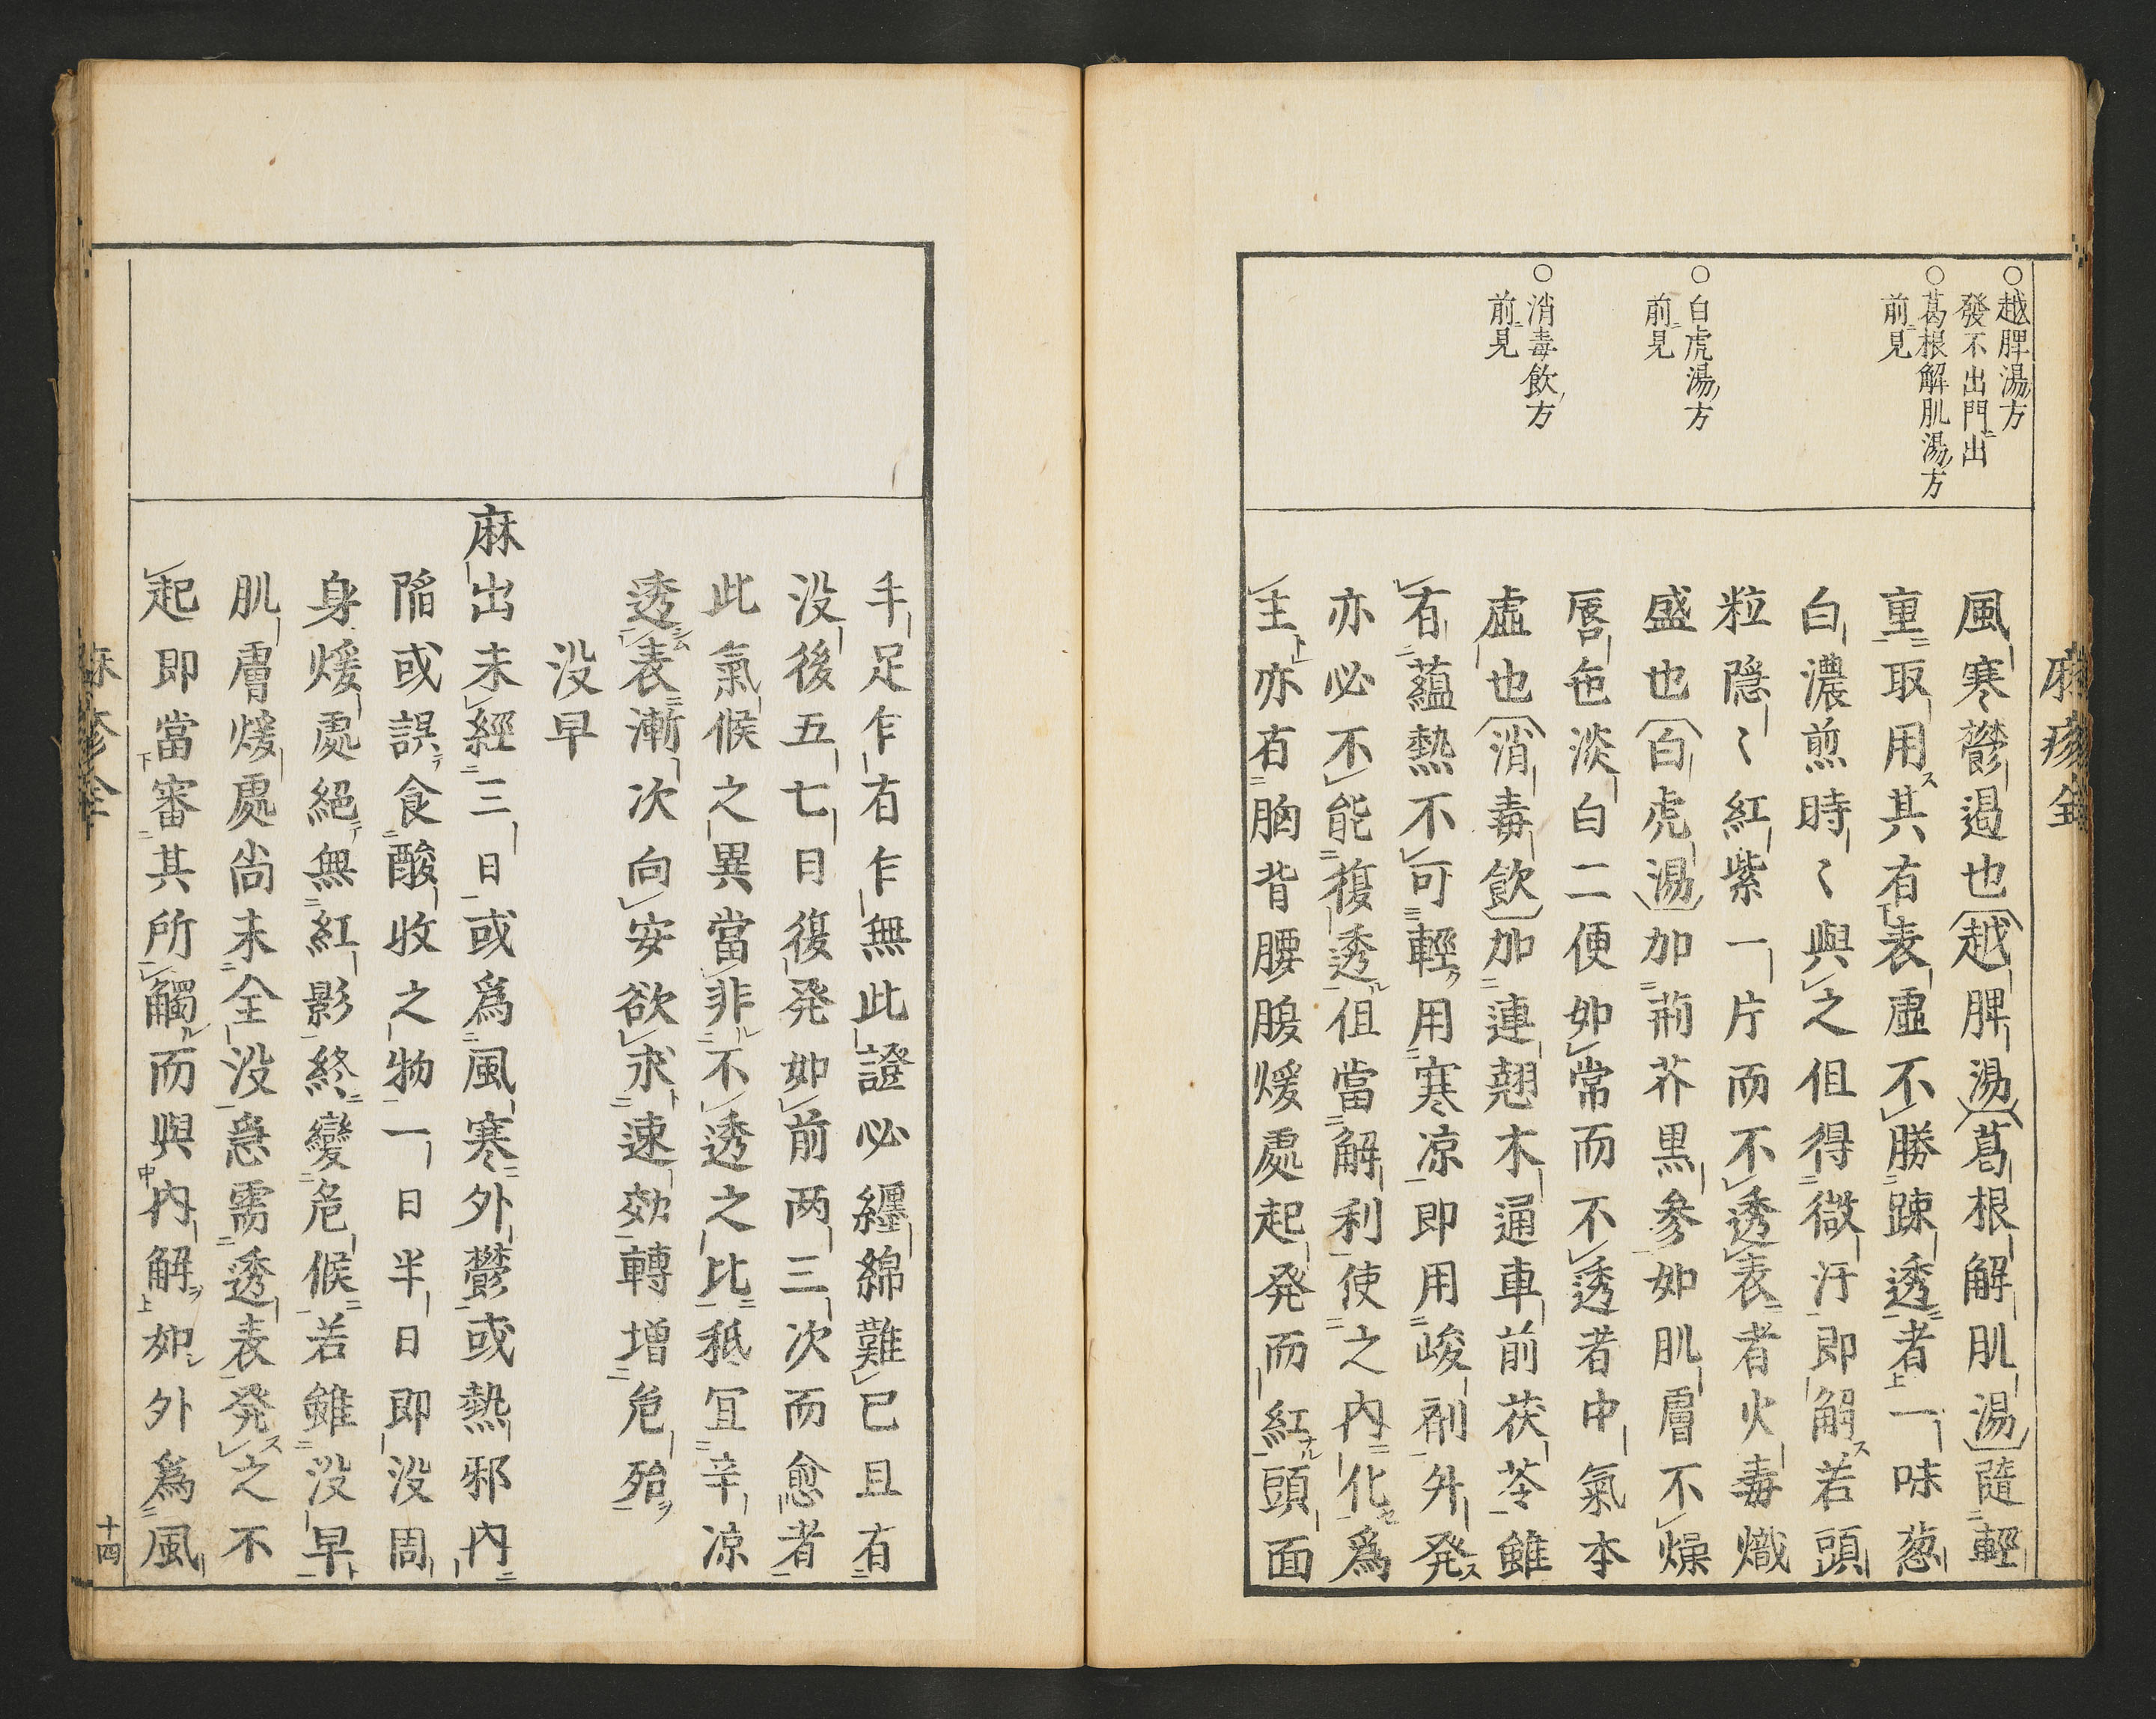 ○越脾湯方
發不出門ニ出
○葛根解肌湯方
前ニ見
○白虎湯方
前ニ見
○消毒飲方
前ニ見
風寒鬱遏也越脾湯葛根解肌湯隨輕
重取用其有表虛不勝踈透者一味葱
白濃煎時〻與之但得微汗即解若頭
粒隱〻紅紫一片而不透表者火毒熾
盛也白虎湯加荊芥黒參如肌膚不燥
唇色淡白二便如常而不透者中氣本
虛也消毒飲加連翹木通車前茯苓雖
有蘊熱不可輕用寒凉即用峻剤升発
亦必不能復透但當解利使之内化爲
主亦有胸背腰腹煖處起発而紅頭面
手足乍有乍無此證必纏綿難已且有
没後五七日復発如前两三次而愈者
此氣候之異當非不透之比秪宜辛凉
透表漸次向安欲求速効轉增危殆
没早
麻出未經三日或爲風寒外鬱或熱邪内
陷或誤食酸收之物一日半日即没周
身煖處絕無紅影終變危候若雖没早
肌膚煖處尚未全没急需透表発之不
起即當審其所觸而與内解如外爲風
十四